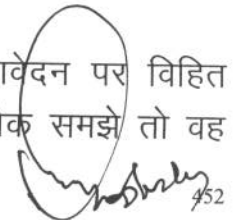 वेदन पर विहित
क समझे तो वह
452